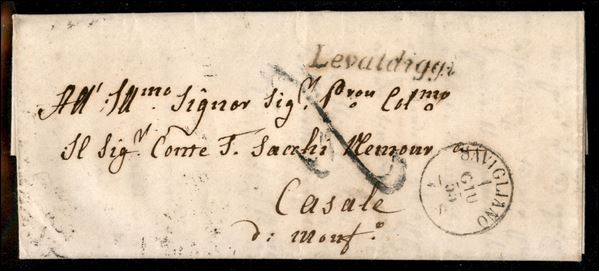 Levaldiggi
All' Ill.mo Signor Sig.r P.ron Col.mo
Il Sig.r Conte F. Sacchi Nemour
Casale
di Monf.o
SAVIGLIANO
1
GIU
55